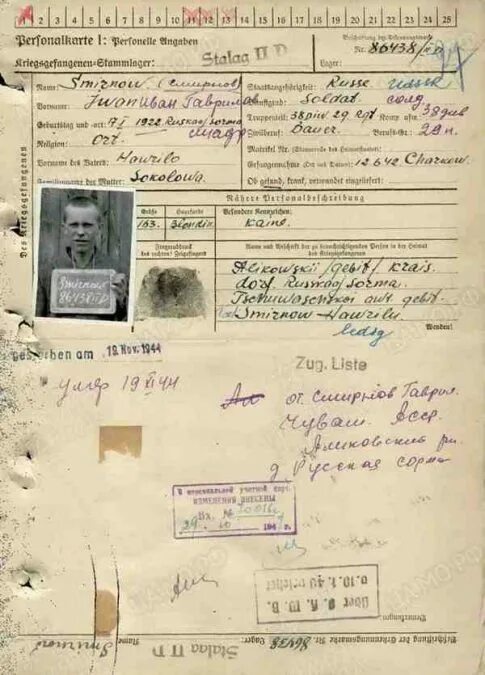 1 2 3 4 5 6 7 8 9 10 11 12 13 14 15 16 17 18 19 20 21 22 23 24 25
Personalkarte I: Personelle Angaben
Kriegsgefangenen-Stammlager: Stalag II D
Beschriftung der Erkennungsmarke
Nr. 86438/IID
Lager:
Des Kriegsgefangenen
Name: Smirnow (Смирнов)
Iwan Иван Гаврилов
Staatsangehörigkeit: Russe
Soldat солд
Geburtstag und -ort: 1922 Russkaj/Sorma
38 div 29 Rgt
Komp. usw.: 38 див
Religion: Ort.
Bauer Berufs-Gr.:
29 п.
Matrikel Nr. (Stammrolle des Heimatstaates):
Vorname des Vaters: Hawrilo
Gefangennahme (Ort und Datum): 12 6 42 Charkow
Familienname der Mutter: Sokolowa
Ob gesund, krank, verwundet eingeliefert:
Nähere Personalbeschreibung
Größe Haarfarbe Besondere Kennzeichen:
163. Blondin Kaine
Fingerabdruck
des rechten! Zeigefinger!
Name und Anschrift der zu benachrichtigenden Person in der Heimat
des Kriegsgefangenen
Smirnow
86438 II D
Alikowskii/gebit/Krais.
dorf Russkaj/Sorma.
Smirnow-Hawrilu
Wenden!
Gestorben am 19. Nov. 1944
Zug. Liste
умер 19 XI 44
от. Смирнов Гаврил.
Чуваш. Асср
Аликовский рн.
д Русская сорма
В персональной учетной карт.
ИЗМЕНЕНИЯ ВНЕСЕНЫ
Вх. №
194
v. 10.1.40
Bemerkungen:
Beschriftung der Erkennungsmarke Nr. 86438 Lager: Stalag II D Name Smirnow